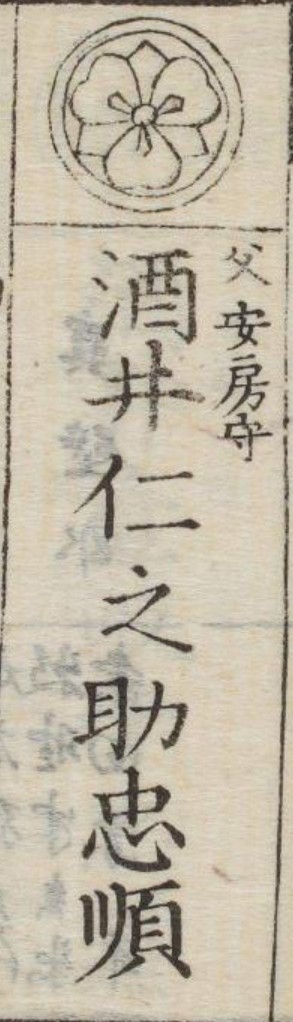 父安房守
酒井仁之助忠順